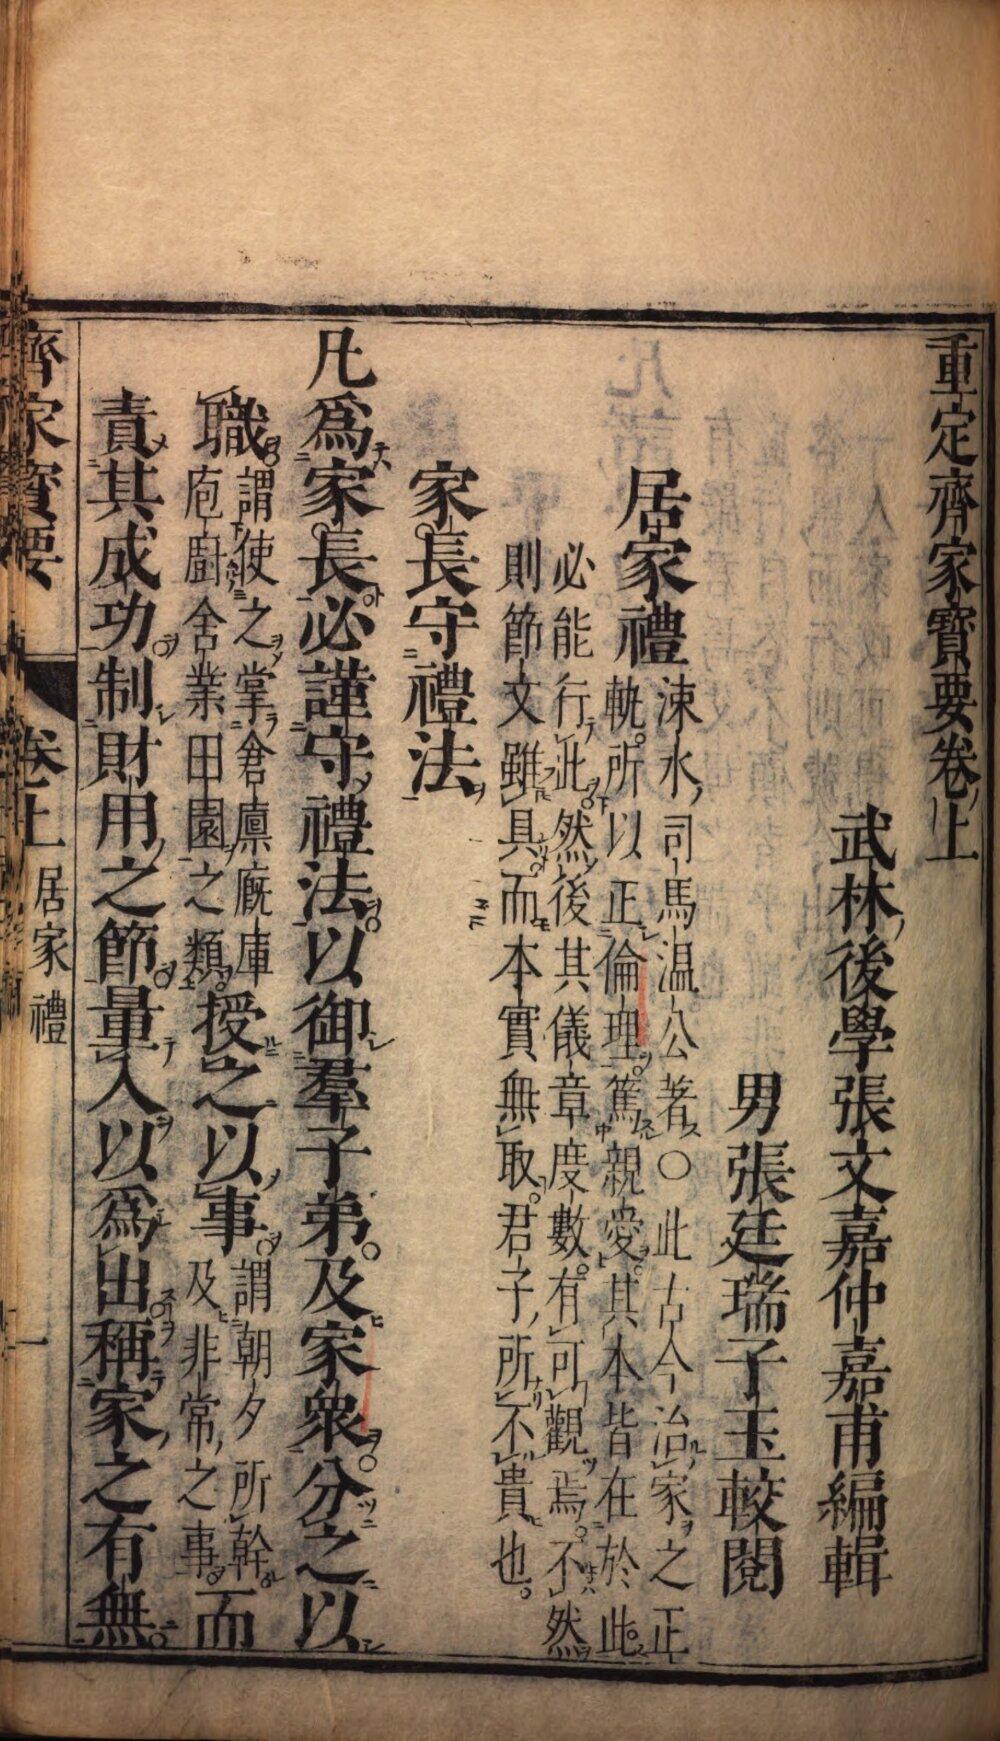 重定齊家寶要卷上
武林後學張文嘉仲嘉甫編輯
男張廷瑞子玉較閱
居家禮
涑水司馬温公著○此古今治家之正
軌所以正倫理篤親愛其本皆在於此
必能行此然後其儀章度數有可觀焉不然
則節文雖具而本實無取君子所不貴也
家長守禮法
凡爲家長必謹守禮法以御羣子弟及家衆分之以
職
謂使之掌倉廩廐庫
庖廚舍業田園之類
授之以事
謂朝夕所幹
及非常之事
而
責其成功制財用之節量入以爲出稱家之有無
齊家寶要
卷上
居家禮
一